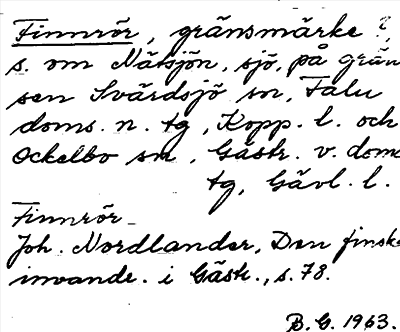 Finnrör, gränsmärke?,
s. om Nätsjön, sjö, på grän
sen Svärdsjö sn, Falu
doms. n. tg, Kopp. l. och
Ockelbo sn, Gästr. v. doms
tg, Gävl. l.
Finnrör
Joh. Nordlander, Den finska
invandr. i Gästr., s. 78.
B.G. 1963.